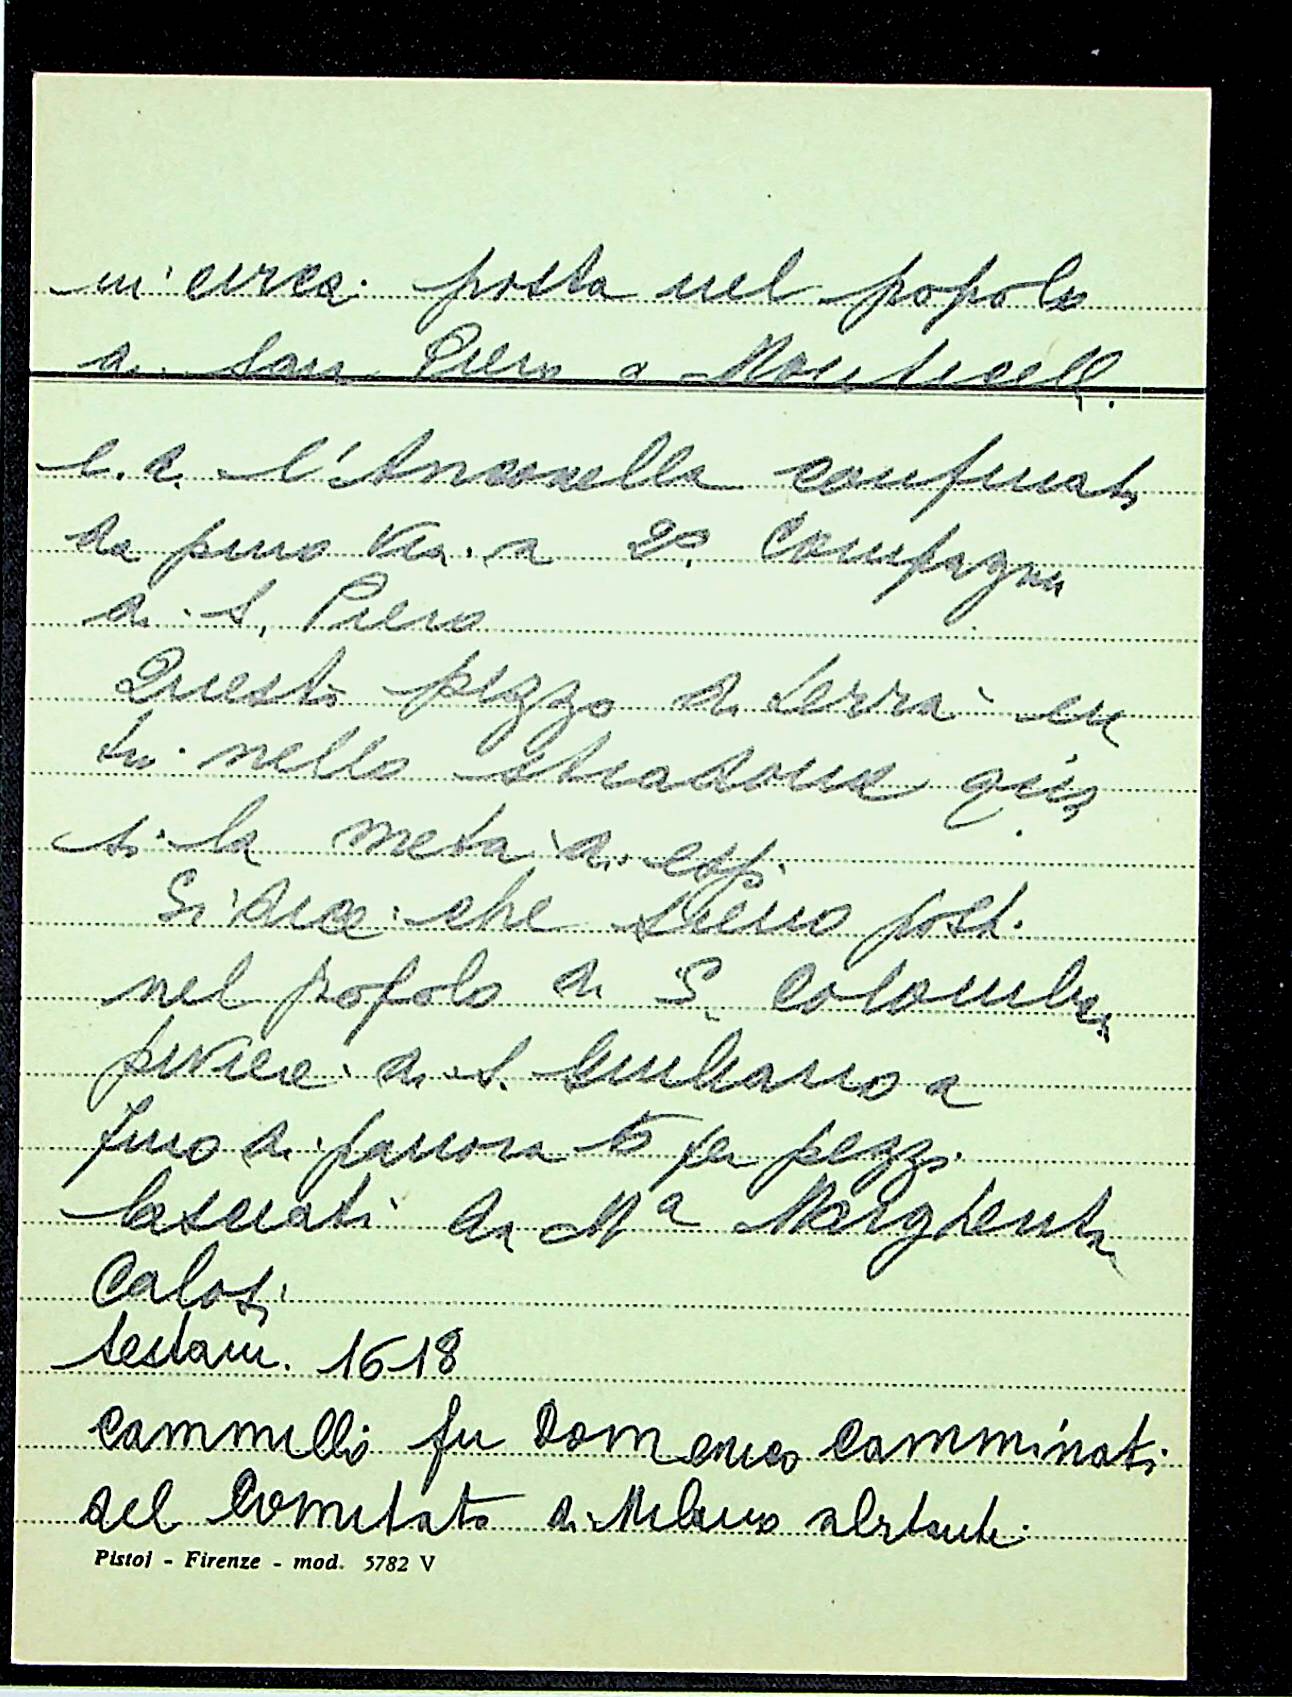 in circa posta nel popolo
di San Piero a Monticelli
l.d. l'Anconella confinato
da primo Via. a 2º. Compagnia
di S. Piero
Questo pezzo di terra en
tri nello stradone qua
si la metà di essi.
Si dice che sieno posti
nel popolo di S. Colomba
piviere di S. Giuliano a
per pezzi
lasciati da Mª Margherita
Calosi
testam. 1618
Cammillo fu Domenico Camminati
del Comitato di Milano abitante
Pistoj - Firenze - mod. 5782 V